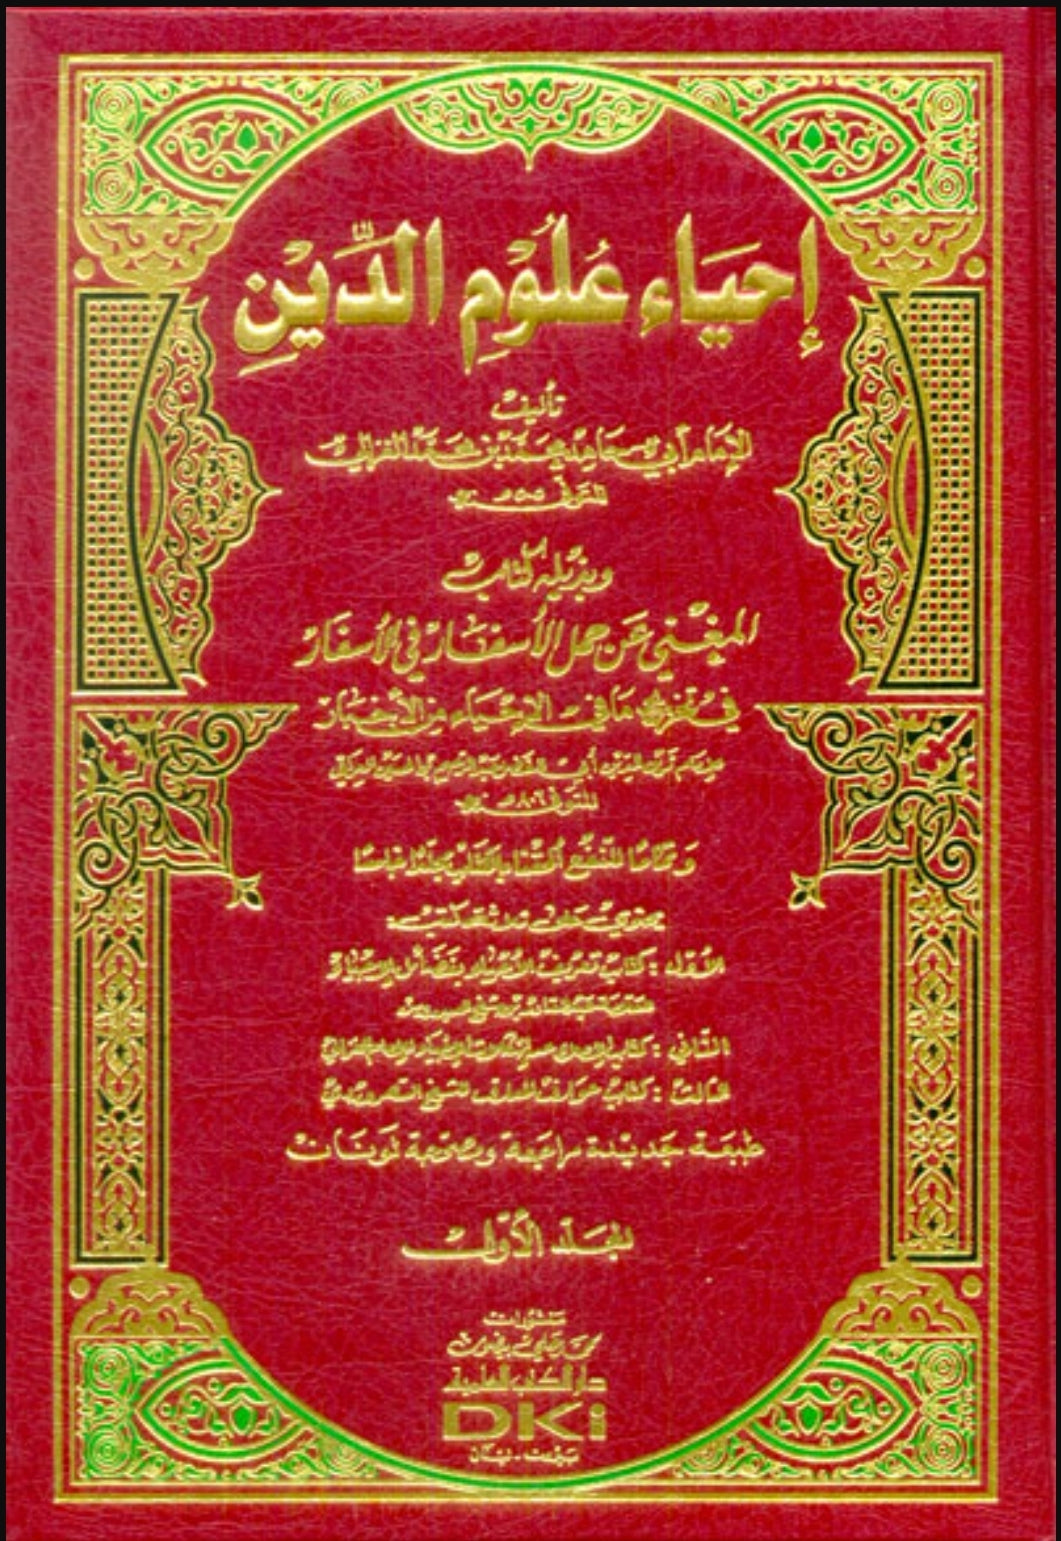 إحياء علوم الدين
تأليف
الإمام أبي حامد محمد بن محمد الغزالي
المتوفى ٥٠٥ هـ
وبذيله كتاب
المغني عن حمل الأسفار في الأسفار
في تخريج ما في الإحياء من الأخبار
المتوفى ٨٠٦ هـ
وتماماً للنفع ألحقنا بالكتاب مجلداً خامساً
يحتوي على ثلاثة كتب:
الأول: كتاب تعريف الأحياء بفضائل الإحياء
الثاني: كتاب الإملاء
الثالث: كتاب عوارف المعارف للشيخ السهروردي
طبعة جديدة مراجعة ومصححة لونان
المجلد الأول
منشورات
محمد علي بيضون
دار الكتب العلمية
DKi
بيروت - لبنان